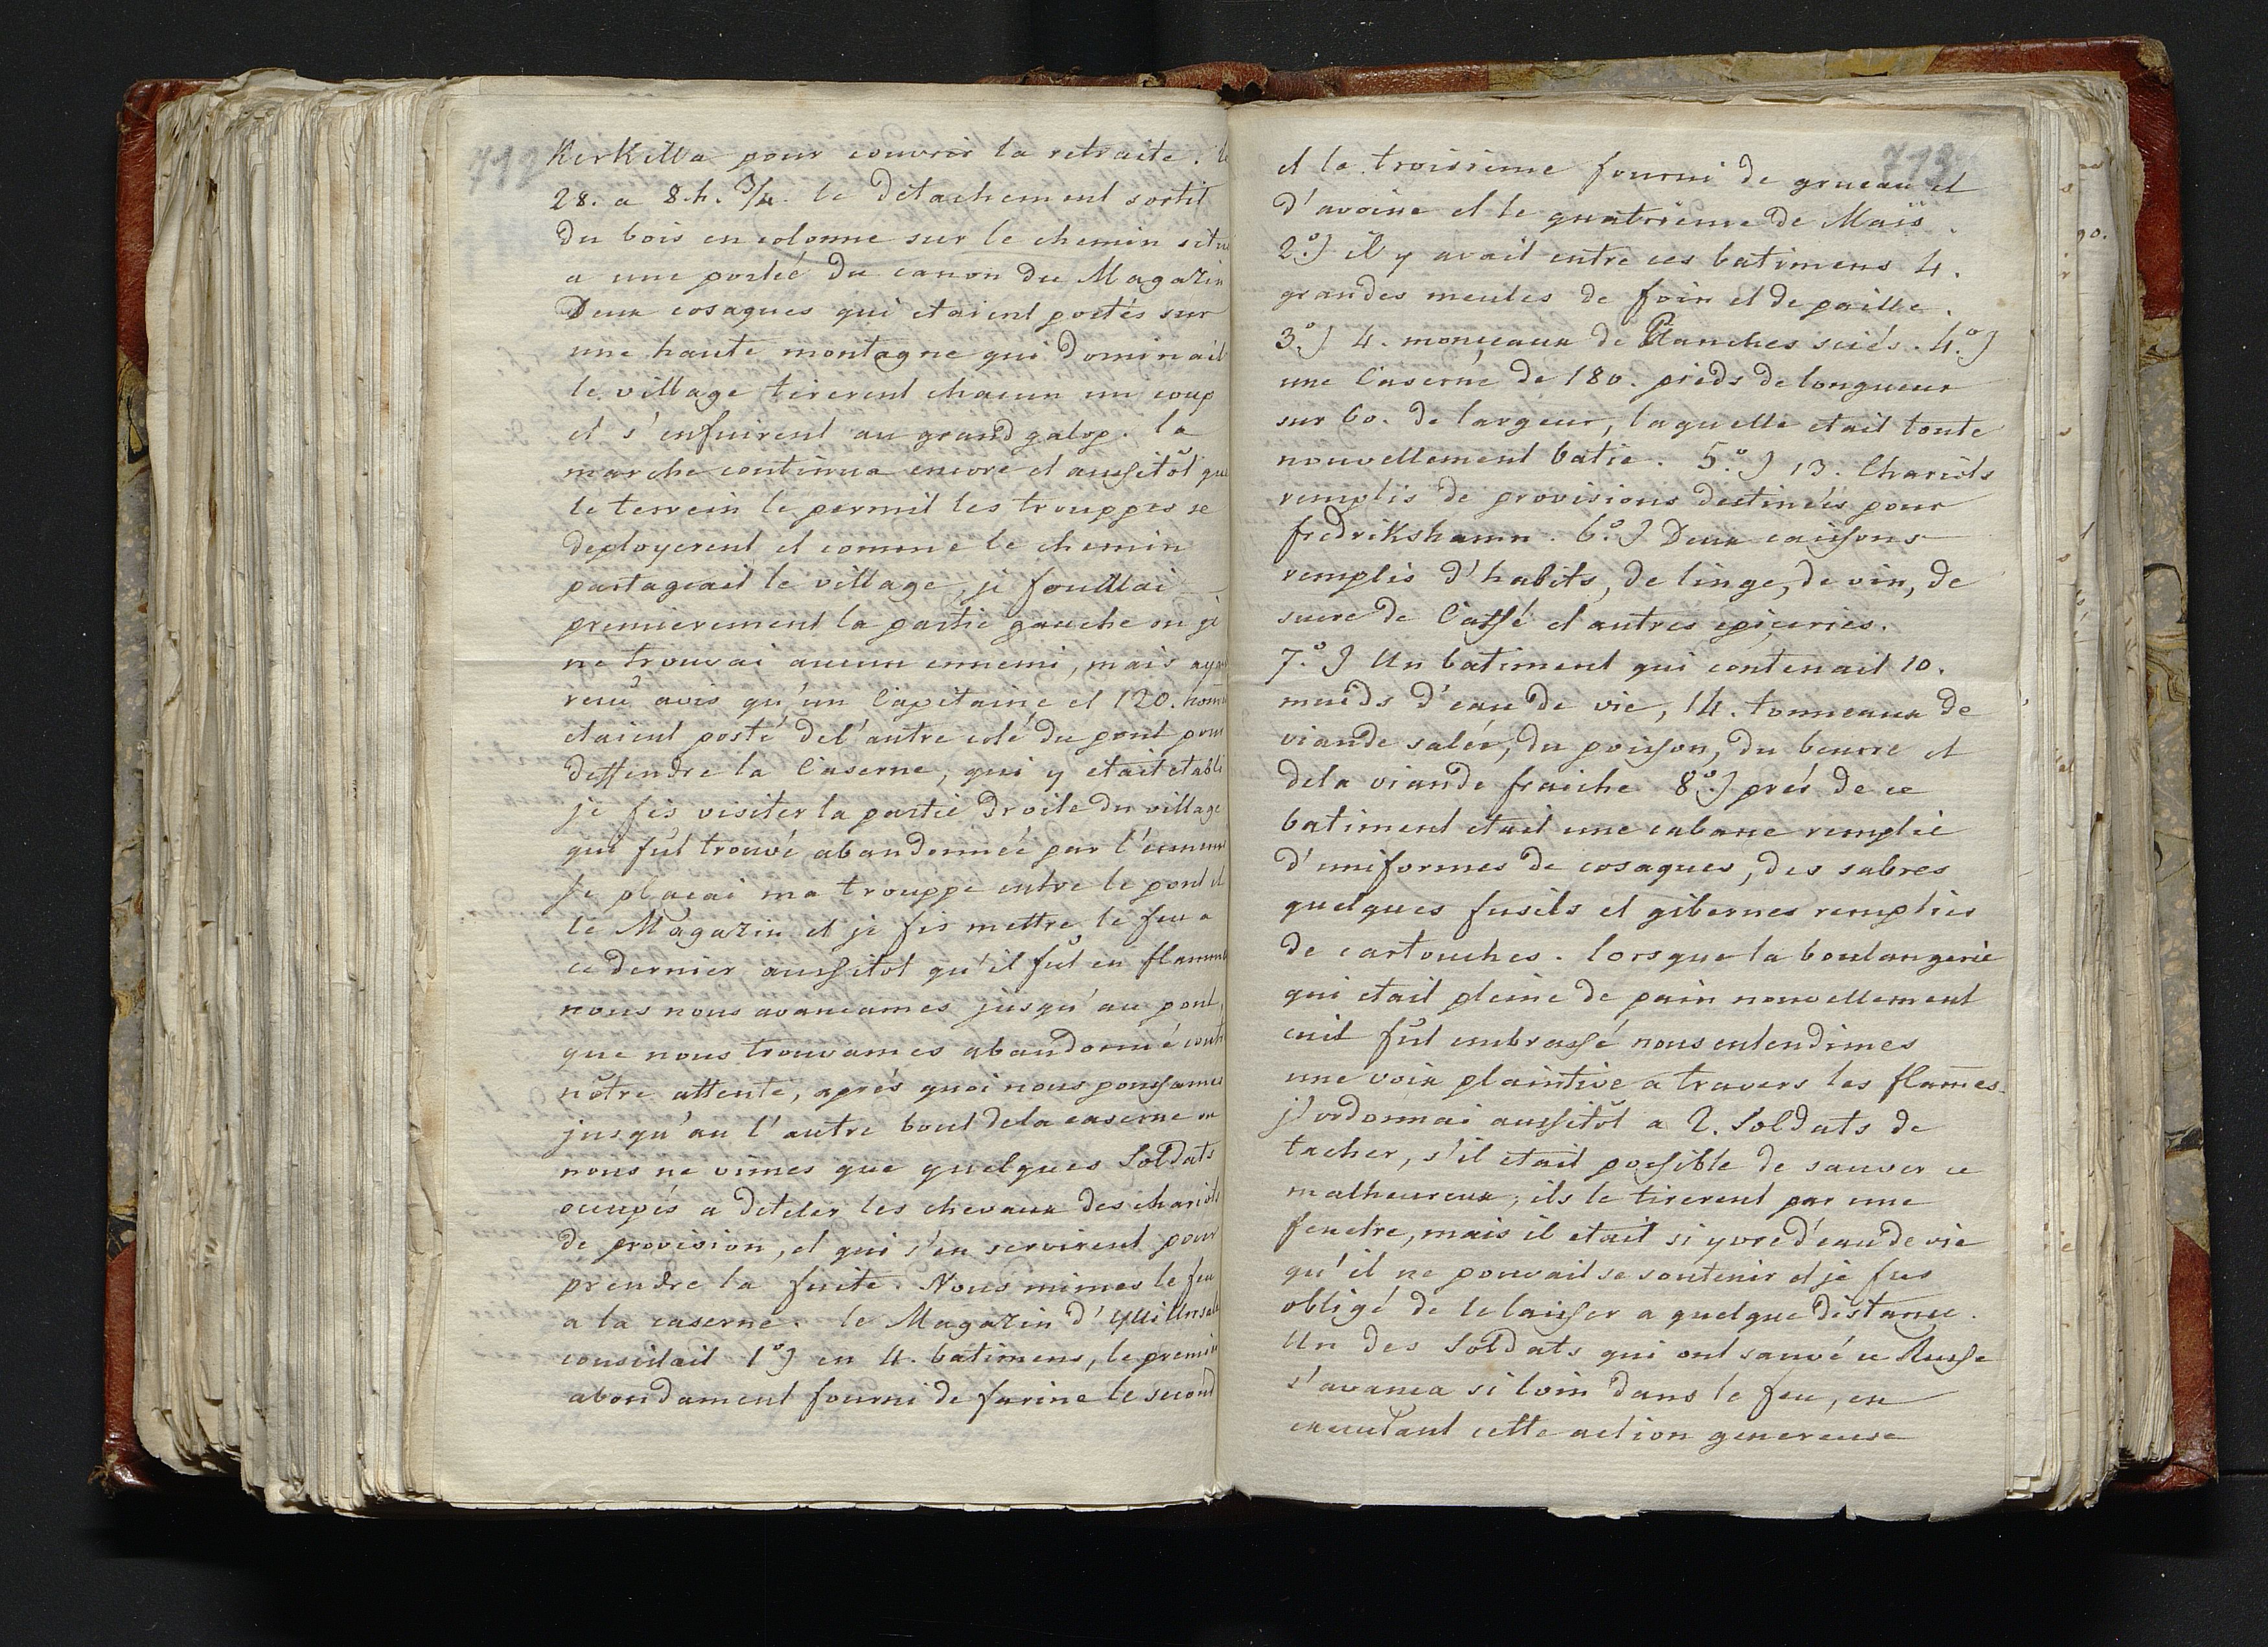 712
KerKilla pour couvrir la retraite. le
28. a 8.h. 3/4. le detachement sortit
du bois en colonne sur le chemin situ
a une porteé du canon du Magazin
Deux cosaques qui etaient postés sur
une haute montagne qui dominait
le village tirerent chacun un coup
et s'enfuirent au grand galop. la
marche continua encore et aussitôt que
le terrein le permit les trouppes se
deployerent et comme le chemin
partageait le village, je fouillai
premierement la partie gauche ou je
ne trouvai aucun ennemi, mais aya
recu avis qu'un Capitaine et 120. homm
etaient posté del'autre coté du pont pour
deffendre la Caserne, qui y etait etabli
je fis visiter la partie droite du village
qui fut trouvé abandonneé par l'ennemi
Je placai ma trouppe entre le pont et
le Magazin et je fis mettre le feu a
ce dernier aussitot qu'il fut en flamme
nous nous avancames jusqu'au pont,
que nous trouvames abandonné contr
nôtre attente, aprés quoi nous poussames
jusqu'au l'autre bout dela caserne ou
nous ne vimes que quelques Soldats
occupés a deteler les chevaux des chariots
de provision, et qui s'en servirent pour
prendre la fuite. Nous mimes le feu
a la caserne. le Magazin d'
consistait 1º) en 4. batimens, le premier
abondament fourni de farine le second
713
et le troisieme fourni de grueau et
d'avoine et le quatrieme de Maïs.
2º) il y avait entre ces batimens 4.
grandes meules de foin et de paille.
3º) 4. monçeaux de Planches sciés. 4º)
une Caserne de 180. pieds de longueur
sur 60. de largeur, laquelle etait toute
nouvellement batie. 5º) 13. Chariots
remplis de provisions destineés pour
fredrikshamn. 6º) Deux caissons
remplis d'habits, de linge, de vin, de
sucre de Caffé et autres epiçeries.
7º) Un batiment qui contenait 10.
muids d'eau de vie, 14. tonneaux de
viande saleé, du poisson, du beurre et
dela viande fraiche 8º) prés de ce
batiment etait une cabane remplie
d'uniformes de cosaques, des sabres
quelques fusils et gibernes remplies
de cartouches. lorsque la boulangerie
qui etait pleine de pain nouvellement
cuit fut embrassé nous entendimes
une voix plaintive a travers les flam̄es.
j'ordonnai aussitôt a 2. Soldats de
tacher, s'il etait possible de sauver ce
malheureux, ils le tirerent par une
fenetre, mais il etait si yvre d'eau de vie
qu'il ne pouvait se soutenir et je fus
obligé de le laisser a quelque distance.
Un des Soldats qui ont sauvé ce Russe
s'avanca si loin dans le feu, en
executant cette action genereuse